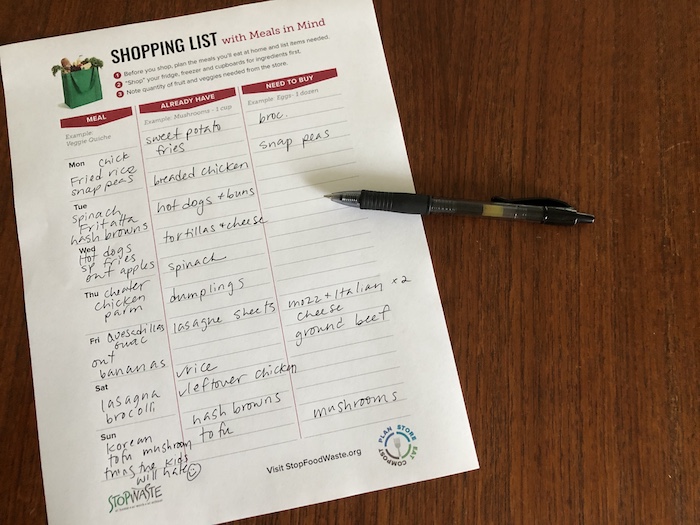 SHOPPING LIST with Meals in Mind
1 Before you shop, plan the meals you'll eat at home and list items needed.
2 "Shop" your fridge, freezer and cupboards for ingredients first.
3 Note quantity of fruit and veggies needed from the store.
MEAL
Example:
Veggie Quiche
Mon chick
Fried rice
snap peas
Tue
spinach
Fritatta
hash browns
Wed
Hot dogs
sp fries
ont apples
Thu cheater
chicken
parm
Fri Quesadillas
guac
ont
bananas
Sat
lasagna
brocolli
Sun
korean
tofu mushroom
thing the kids
will hate
ALREADY HAVE
Example: Mushrooms - 1 cup
sweet potato
fries
breaded chicken
hot dogs + buns
tortillas + cheese
spinach
dumplings
lasagne sheets
rice
leftover chicken
hash browns
tofu
NEED TO BUY
Example: Eggs- 1 dozen
broc.
snap peas
mozz + Italian x2
cheese
ground beef
mushrooms
STOPWASTE
Visit StopFoodWaste.org
PLAN STORE EAT COMPOST